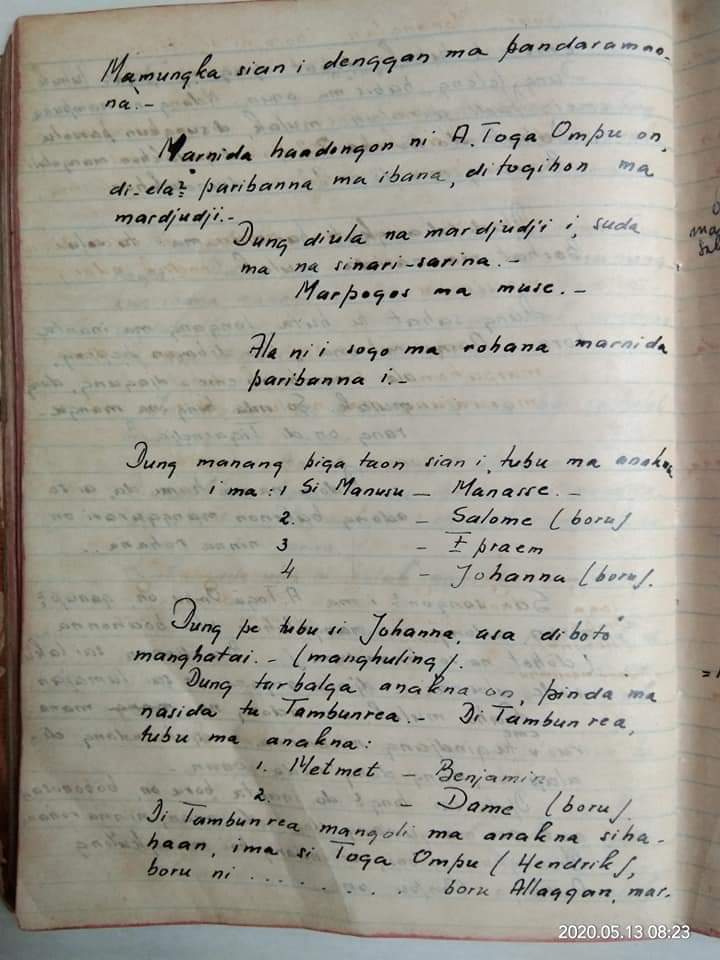 Mamungka sian i denggan ma pandaramno-
na.-
Marnida haadongon ni A. Toga Ompu on,
di-ela2 paribanna ma ibana, ditogihon ma
mardjudji.-
Dung diula na mardjudji i, suda
ma na sinari-sarina.-
Marpogos ma muse.-
Ala ni i sogo ma rohana marnida
paribanna i.-
Dung manang piga taon sian i, tubu ma anakna
i ma: 1 Si Manusu - Manasse.-
2. - Salome (boru)
3 - Ipraem
4 - Johanna (boru).
Dung pe tubu si Johanna, asa diboto
manghatai.- (manghuling).
Dung turbalga anakna on, pinda ma
nasida tu Tambunrea.- Di Tambunrea,
tubu ma anakna:
1. Metmet - Benjamin
2. - Dame (boru).
Di Tambunrea mangoli ma anakna siha-
haan, ima si Toga Ompu (Hendrik),
boru ni .......... boru Allaggan, mar.
2020.05.13 08:23